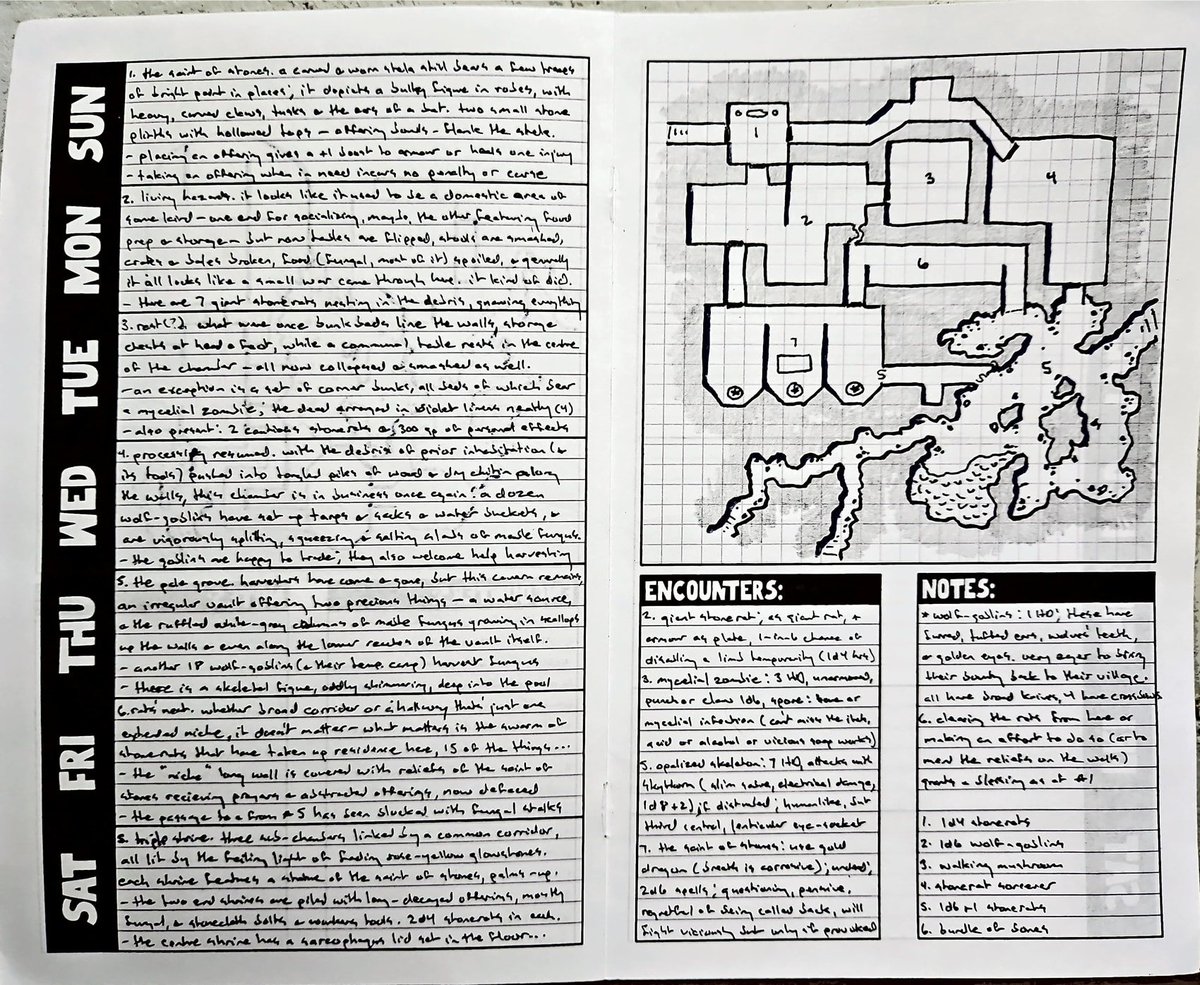 SUN
MON
TUE
WED
THU
FRI
SAT
1. the saint of stones. a carved & worn stela still bears a few traces
of bright paint in places; it depicts a bulky figure in robes, with
heavy, curved claws, tusks & the ears of a bat. two small stone
plinths with hollowed tops – offering bowls – flank the stela.
- placing an offering gives a +1 boost to armour or heals one injury
- taking an offering when in need incurs no penalty or curse
2. living hazards. it looks like it used to be a domestic area of
some kind – one end for socializing, maybe, the other featuring food
prep & storage – but now tables are flipped, stools are smashed,
crates & bales broken, food (fungal, most of it) spoiled, & generally
it all looks like a small war came through here. it kind of did.
- there are 7 giant stonerats nesting in the debris, gnawing everything
3. rest(?). what were once bunk beds line the walls, storage
chests at head & foot, while a communal table rests in the centre
of the chamber – all now collapsed & smashed as well.
- an exception is a set of corner bunks, all beds of which bear
a mycelial zombie; the dead arranged in violet linens neatly (4)
- also present: 2 cautious stonerats & 300 gp of personal effects
4. processing resumed. with the debris of prior inhabitation (&
its tools) pushed into tangled piles of wood & dry chitin along
the walls, this chamber is in business once again: a dozen
wolf-goblins have set up tarps & sacks & water buckets, &
are vigorously splitting, squeezing & salting slabs of maile fungus.
- the goblins are happy to trade; they also welcome help harvesting
5. the pale grove. harvesters have come & gone, but this cavern remains,
an irregular vault offering two precious things – a water source,
& the ruffled white-grey columns of maile fungus growing in scallops
up the walls & even along the lower reaches of the vault itself.
- another 18 wolf-goblins (& their temp. camp) harvest fungus
- there is a skeletal figure, oddly shimmering, deep into the pool
6. rats' nest. whether broad corridor or a hallway that's just one
extended niche, it doesn't matter – what matters is the swarm of
stonerats that have taken up residence here, 15 of the things...
- the "niche" long wall is covered with reliefs of the saint of
stones recieving prayers & abstracted offerings, now defaced
- the passage to & from #5 has been blocked with fungal stalks
triple shrine. three sub-chambers linked by a common corridor,
all lit by the failing light of fading rose-yellow glowstones.
each shrine features a statue of the saint of stones, palms up.
- the two end shrines are piled with long-decayed offerings, mostly
fungal, & stonecloth bolts & workers tools. 2d4 stonerats in each.
- the centre shrine has a sarcophagus lid set in the floor...
1
2
3
4
5
6
7
S
ENCOUNTERS:
2. giant stonerat; as giant rat, +
armour as plate, 1-in-6 chance of
disabling a limb temporarily (1d4 hrs)
3. mycelial zombie: 3 HD, unarmoured,
punch or claw 1d6, spore: save or
mycelial infection (can't miss the itch,
acid or alcohol or vicious soap works)
5. opalized skeleton: 7 HD, attacks with
skythorn (slim sabre, electrical damage,
1d8+2) if disturbed; humanlike, but
third central, lenticular eye-socket
7. the saint of stones: use gold
dragon (breath is corrosive); undead;
2d6 spells; questioning, pensive,
regretful of being called back, will
fight viciously but only if provoked
NOTES:
* wolf-goblins: 1 HD; these have
furred, tufted ears, wolves' teeth,
& golden eyes. very eager to bring
their bounty back to their village.
all have broad knives, 4 have crossbows
6. clearing the rats from here or
making an effort to do so (or to
mend the reliefs on the walls)
grants a blessing as at #1
1. 1d4 stonerats
2. 1d6 wolf-goblins
3. walking mushroom
4. stonerat sorcerer
5. 1d6+1 stonerats
6. bundle of bones